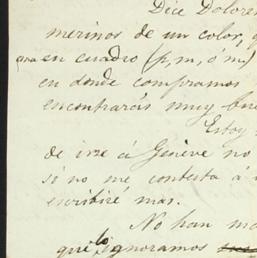 Dice Dolores
merinos de un color,
en cuadro (p, m, ó m)
en donde compramos
encontrarás muy bue
Estoy
de irse á Genève no
si no me contesta á
escribiré mas.
No han
que lo ignoramos